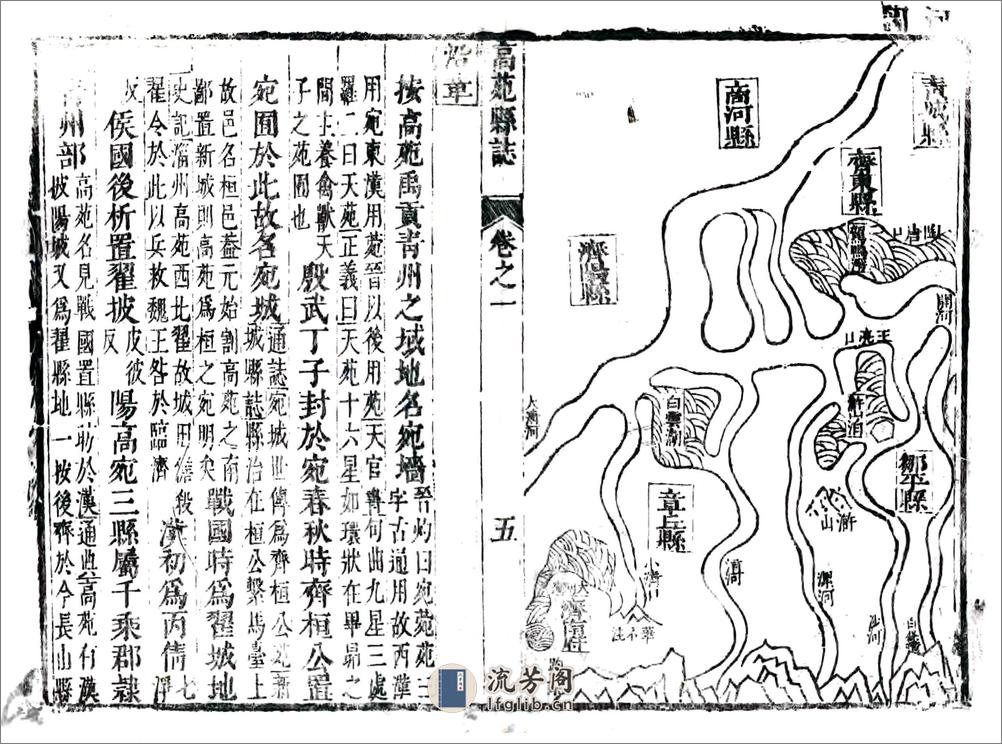 青城縣
商河縣
齊東縣
大清河
白雲湖
鄒平縣
滸山
章丘縣
小清口
漯河
沙河
華不注
高苑縣誌
卷之一
五
沿革
按高苑禹貢青州之域地名宛墻
晉灼曰宛苑三
字古通用故西漢
用宛東漢用苑晉以後用苑天官書句曲九星三處
羅二曰天苑正義曰天苑十六星如環狀在畢昴之
間主養禽獸天
子之苑囿也
殷武丁子封於宛春秋時齊桓公置
宛囿於此故名宛城
通誌宛城世傳爲齊桓公苑新
城縣誌縣治在桓公繫馬臺上
故邑名桓邑葢元始割高苑之南
鄙置新城則高苑爲桓之宛明矣
戰國時爲翟城地
史記淄州高苑西北翟故城用儋殺
翟令於此以兵救魏王咎於臨濟
漢初爲丙倩
七
淨
反
侯國後析置翟披
皮彼
反
陽高宛三縣屬千乗郡隷
州部
高苑名見戰國置縣昉於漢通典高苑有漢
被陽城又爲翟縣地一按後齊於今長山縣
流芳阁
lfglib.cn